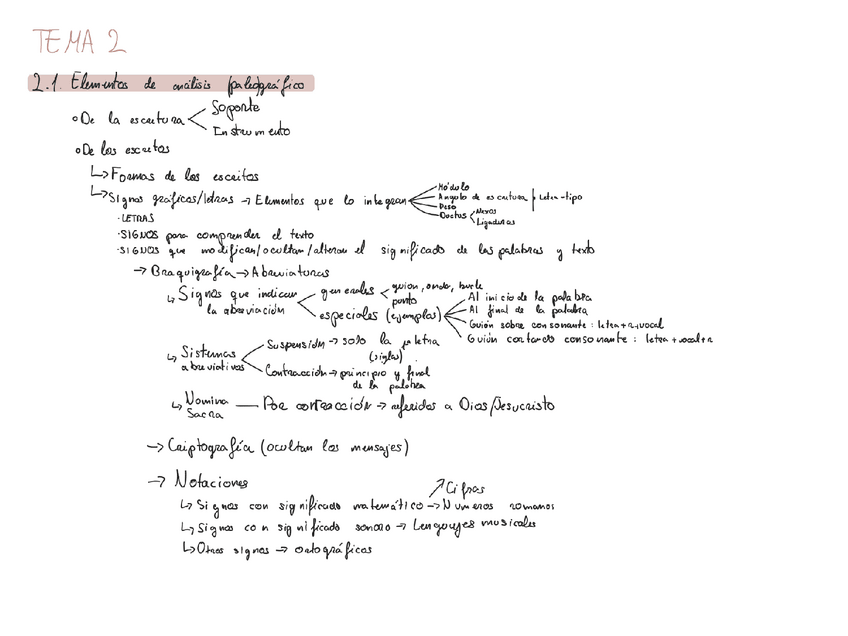 TEMA 2
2.1. Elementos de análisis paleográfico
De la escritura
Soporte
Instrumento
De los escritos
↳ Formas de los escritos
↳ Signos gráficos/letras → Elementos que lo integran
Módulo
Angulo de escritura
Peso
Ductus
Nexos
Ligaduras
Letra-tipo
· LETRAS
· SIGNOS para comprender el texto
· SIGNOS que modifican/ocultan/alteran el significado de las palabras y texto
→ Braquigrafía → Abreviaturas
↳ Signos que indican la abreviación
generales
guion, onda, bucle
punto
especiales (ejemplos)
Al inicio de la palabra
Al final de la palabra
Guión sobre consonante: letra+r+vocal
Guión cortando consonante: letra+vocal+r
↳ Sistemas abreviativos
Suspensión → solo la 1ª letra
(siglas)
Contracción → principio y final
de la palabra
↳ Nomina Sacra — Por contracción → referidos a Dios/Jesucristo
→ Criptografía (ocultan los mensajes)
→ Notaciones
↗ Cifras
↳ Signos con significado matemático → Números romanos
↳ Signos con significado sonoro → Lenguajes musicales
↳ Otros signos → ortográficos